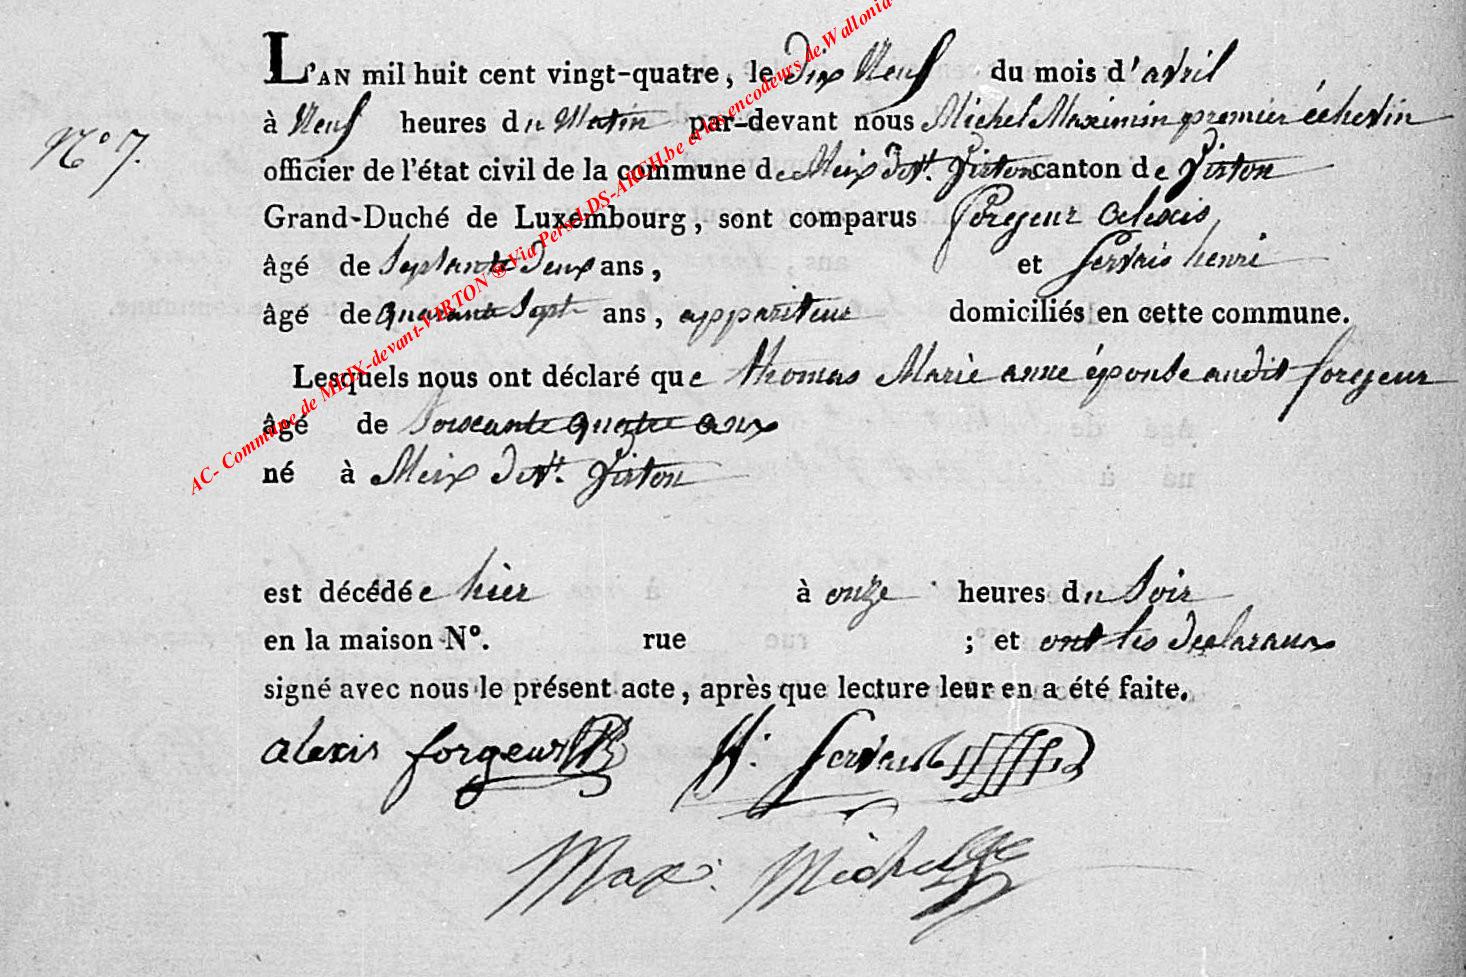 L'AN mil huit cent vingt-quatre, le dix Neuf du mois d'avril
N° 7.
à Neuf heures du Matin par-devant nous Michel Maximin premier échevin
officier de l'état civil de la commune de Meix devt. Virton canton de Virton
Grand-Duché de Luxembourg, sont comparus forgeur alexis,
âgé de Septante deux ans, et Servais henri
âgé de quarante Sept ans, appariteur domiciliés en cette commune.
Lesquels nous ont déclaré que thomas Marie anne épouse audit forgeur
âgé de Soixante quatre ans
né à Meix devt. Virton
est décédée hier à onze heures du Soir
en la maison N°. rue ; et ont les declarans
signé avec nous le présent acte, après que lecture leur en a été faite.
alexis forgeur H. Servais
Max. Michel
AC- Commune de MEIX-devant-VIRTON ® Via Pers LDS-ARCH.be et les encodeurs de Wallonia